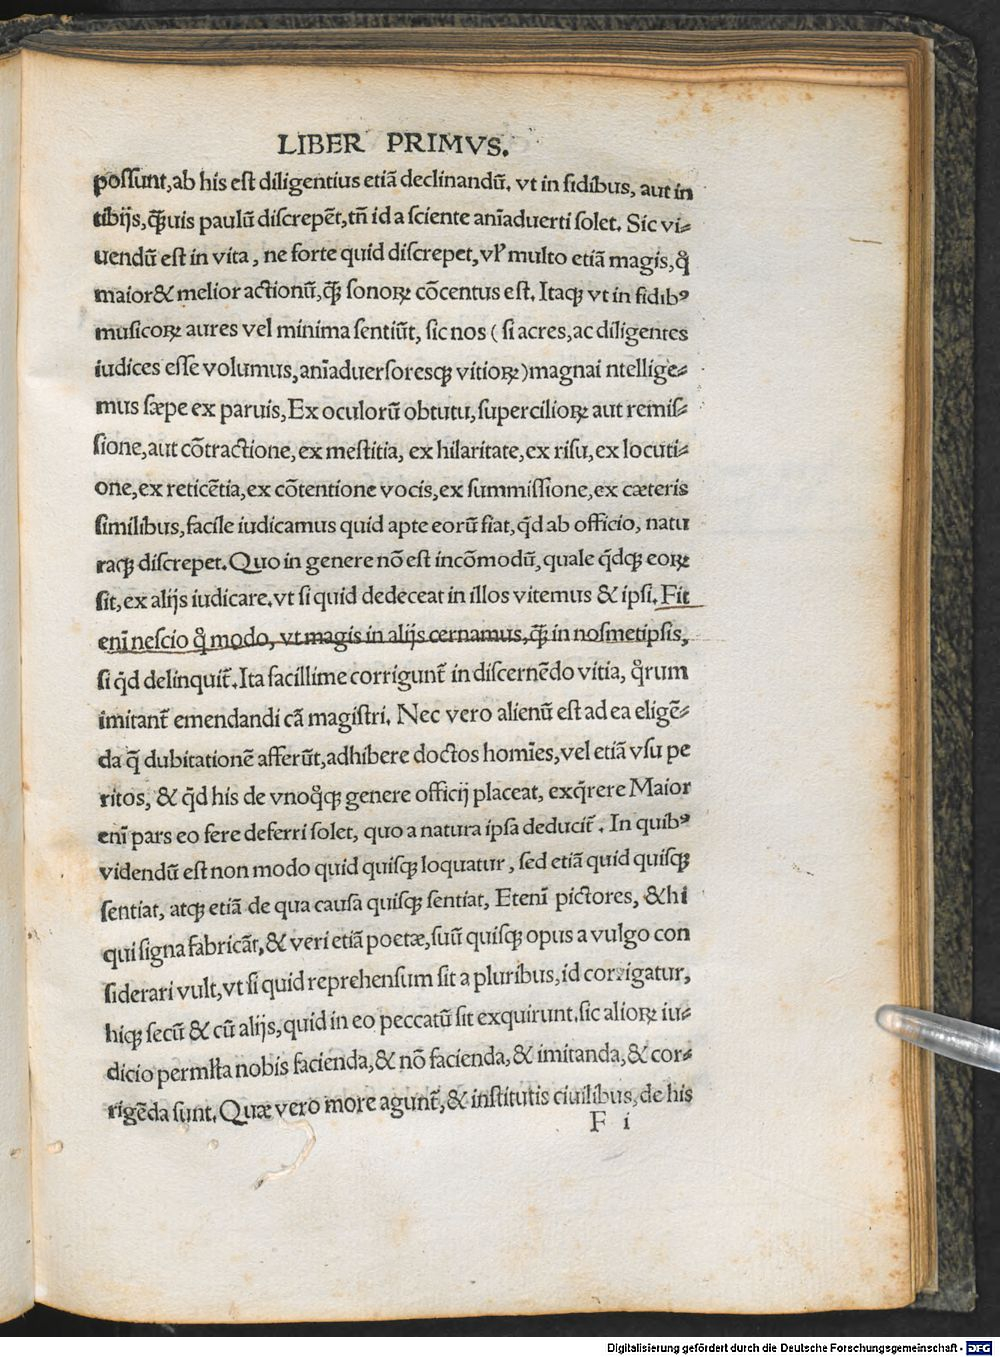 LIBER PRIMVS.
possunt,ab his est diligentius etiã declinandũ. vt in fidibus, aut in
tibijs,q̃uis paulũ discrepẽt,tñ id a sciente anĩaduerti solet. Sic vi⸗
uendũ est in vita, ne forte quid discrepet,vl’ multo etiã magis,q̊
maior& melior actionũ,q̃ꝫ sonoꝝ cõcentus est. Itaqꝫ vt in fidibꝰ
musicoꝝ aures vel minima sentiũt, sic nos (si acres,ac diligentes
iudices esse volumus,anĩaduersoresqꝫ vitioꝝ)magnai ntellige⸗
mus sæpe ex paruis,Ex oculorũ obtutu,supercilioꝝ aut remis⸗
sione,aut cõtractione,ex mestitia, ex hilaritate,ex risu,ex locuti⸗
one,ex reticẽtia,ex cõtentione vocis,ex summissione,ex cæteris
similibus,facile iudicamus quid apte eorũ fiat,q̃d ab officio, natu
raqꝫ discrepet.Quo in genere nõ est incõmodũ,quale q̃dqꝫ eoꝝ
sit,ex alijs iudicare.vt si quid dedeceat in illos vitemus & ipsi.Fit
enĩ nescio q̊ modo, vt magis in alijs cernamus,q̃ꝫ in nosmetipsis,
si q̃d delinquit̃.Ita facillime corrigunt̃ in discernẽdo vitia, q̊rum
imitant̃ emendandi cã magistri. Nec vero alienũ est ad ea eligẽ⸗
da q̃ dubitationẽ afferũt,adhibere doctos homĩes,vel etiã vsu pe
ritos, & q̃d his de vnoq̊qꝫ genere officij placeat, exq̃rere Maior
enĩ pars eo fere deferri solet, quo a natura ipsa deducit̃. In quibꝰ
videndũ est non modo quid quisqꝫ loquatur, sed etiã quid quisqꝫ
sentiat, atqꝫ etiã de qua causa quisqꝫ sentiat, Etenĩ pictores, &hi
qui signa fabricãt,& veri etiã poetæ,suũ quisqꝫ opus a vulgo con
siderari vult,vt si quid reprehensum sit a pluribus,id corrigatur,
hiqꝫ secũ & cũ alijs,quid in eo peccatũ sit exquirunt.sic alioꝝ iu⸗
dicio permlta nobis facienda,& nõ facienda,& imitanda,& cor⸗
rigẽda sunt.Quæ vero more agunt̃,& institutis ciuilibus,de his
F i
Digitalisierung gefördert durch die Deutsche Forschungsgemeinschaft - DFG